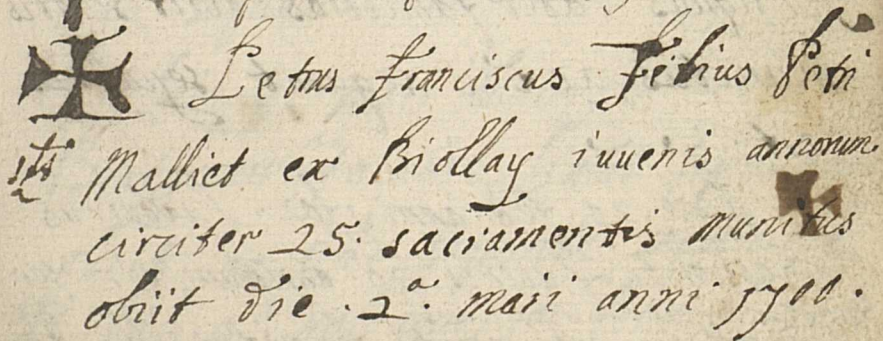 Petrus Franciscus Filius Petri
Malliet ex Biollay iuuenis annorum
circiter 25. sacramentis munitus
obiit die .2a. maii anni 1700.